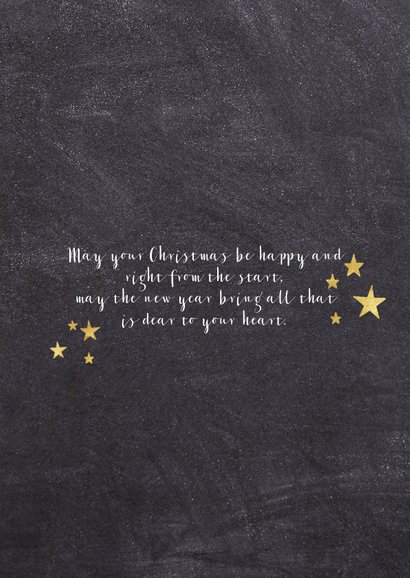 May your Christmas be happy and
right from the start,
may the new year bring all that
is dear to your heart.